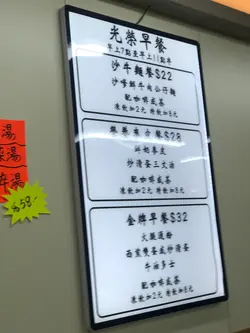 光榮早餐
早上7點至早上11點半
沙牛麵餐$22
沙嗲鮮牛肉公仔麵
配咖啡或茶
凍飲加2元 特飲加8元
餐$28
炒滑蛋三文治
配咖啡或茶
凍飲加2元 特飲加8元
金牌早餐$32
火腿通粉
西煎雙蛋或炒滑蛋
牛油多士
配咖啡或茶
凍飲加2元 特飲加8元
湯
湯
湯
$58-